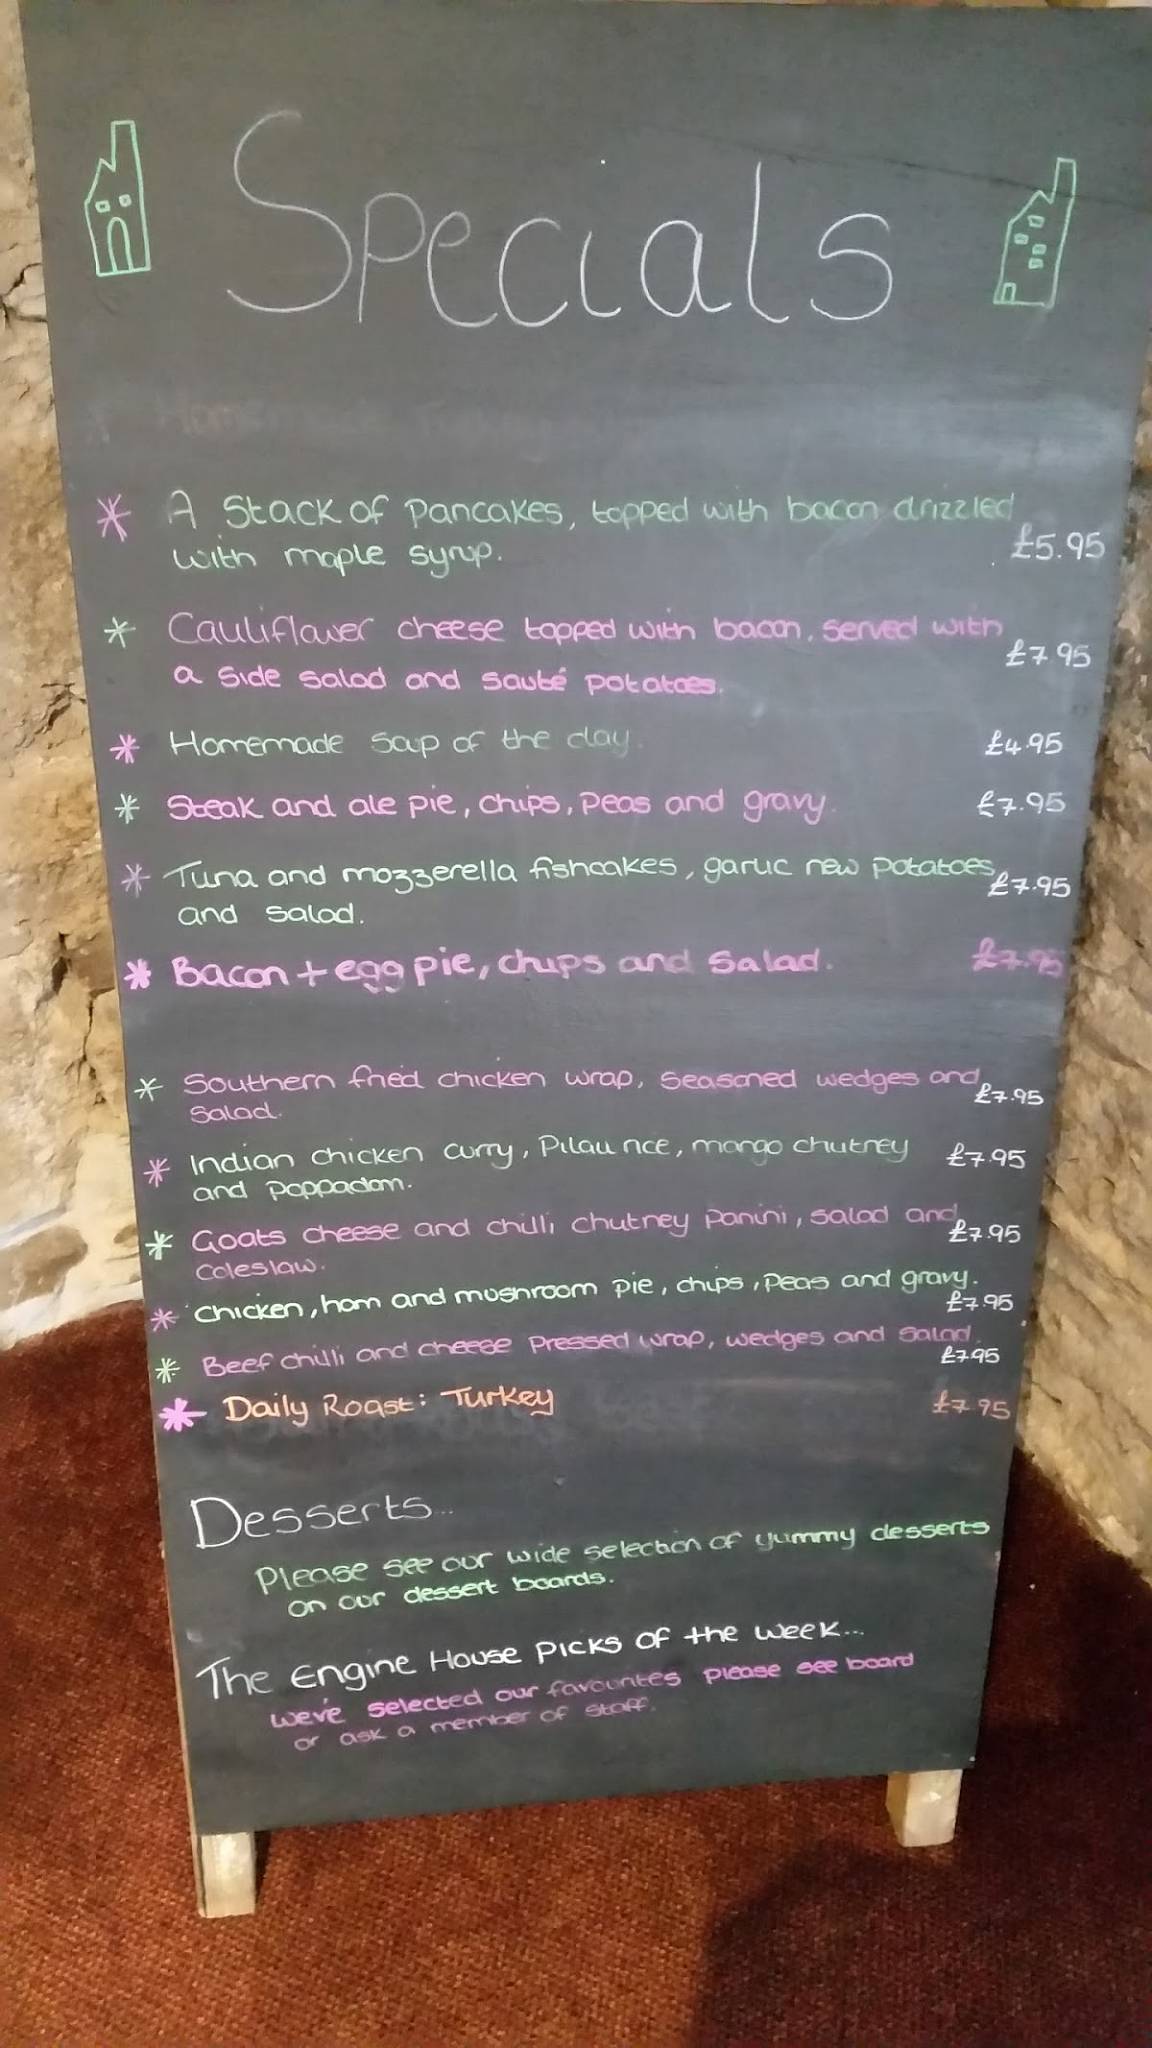 Specials
* A Stack of pancakes, topped with bacon drizzled
with maple syrup.
£5.95
* Cauliflower cheese topped with bacon, served with
a side salad and sauté potatoes.
£7.95
* Homemade soup of the day. £4.95
* Steak and ale pie, chips, peas and gravy. £7.95
* Tuna and mozzerella fishcakes, garlic new potatoes
and salad.
£7.95
* Bacon + egg pie, chips and salad. £7.95
* Southern fried chicken wrap, seasoned wedges and
salad.
£7.95
* Indian chicken curry, Pilau rice, mango chutney
and poppadom.
£7.95
* Goats cheese and chilli chutney panini, salad and
coleslaw.
£7.95
* Chicken, ham and mushroom pie, chips, peas and gravy.
£7.95
* Beef chilli and cheese pressed wrap, wedges and salad.
£7.95
* Daily Roast: Turkey £7.95
Desserts...
Please see our wide selection of yummy desserts
on our dessert boards.
The Engine House picks of the week...
we've selected our favourites please see board
or ask a member of staff.